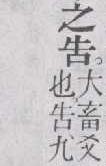 之告。大畜爻
也告九